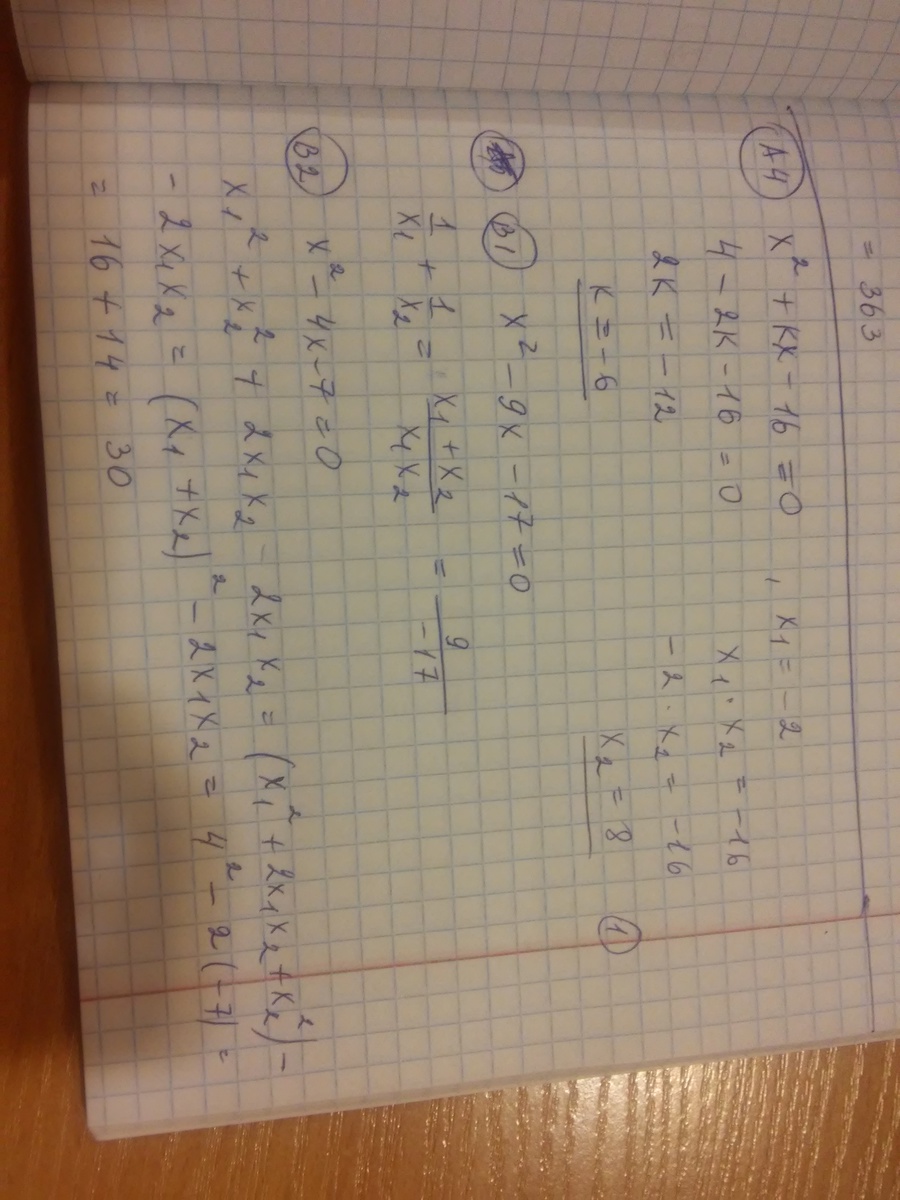 = 363
А4 x² + kx - 16 = 0 , x₁ = -2
4 - 2k - 16 = 0 x₁ · x₂ = -16
2k = -12 -2 · x₂ = -16
k = -6 x₂ = 8 ①
В1 x² - 9x - 17 = 0
1/x₁ + 1/x₂ = (x₁ + x₂)/(x₁x₂) = 9/-17
В2 x² - 4x - 7 = 0
x₁² + x₂² + 2x₁x₂ - 2x₁x₂ = (x₁² + 2x₁x₂ + x₂²) -
- 2x₁x₂ = (x₁ + x₂)² - 2x₁x₂ = 4² - 2(-7) =
= 16 + 14 = 30